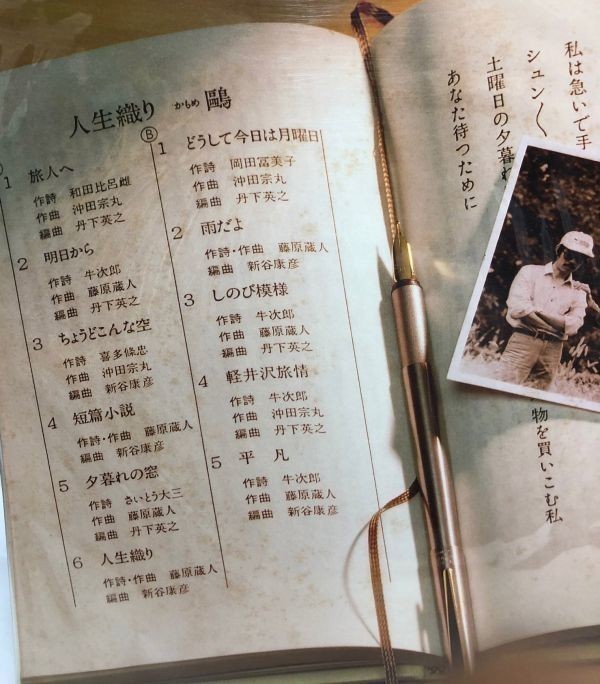 人生織り かもめ 鷗
1 旅人へ
作詩 和田比呂雌
作曲 沖田宗丸
編曲 丹下英之
2 明日から
作詩 牛次郎
作曲 藤原蔵人
編曲 丹下英之
3 ちょうどこんな空
作詩 喜多條忠
作曲 沖田宗丸
編曲 新谷康彦
4 短篇小説
作詩・作曲 藤原蔵人
編曲 新谷康彦
5 夕暮れの窓
作詩 さいとう大三
作曲 藤原蔵人
編曲 丹下英之
6 人生織り
作詩・作曲 藤原蔵人
編曲 新谷康彦
Ⓑ
1 どうして今日は月曜日
作詩 岡田冨美子
作曲 沖田宗丸
編曲 丹下英之
2 雨だよ
作詩・作曲 藤原蔵人
編曲 新谷康彦
3 しのび模様
作詩 牛次郎
作曲 藤原蔵人
編曲 丹下英之
4 軽井沢旅情
作詩 牛次郎
作曲 沖田宗丸
編曲 丹下英之
5 平凡
作詩 牛次郎
作曲 藤原蔵人
編曲 新谷康彦
私は急いで手
シュン
土曜日の夕暮れ
あなた待つために
物を買いこむ私